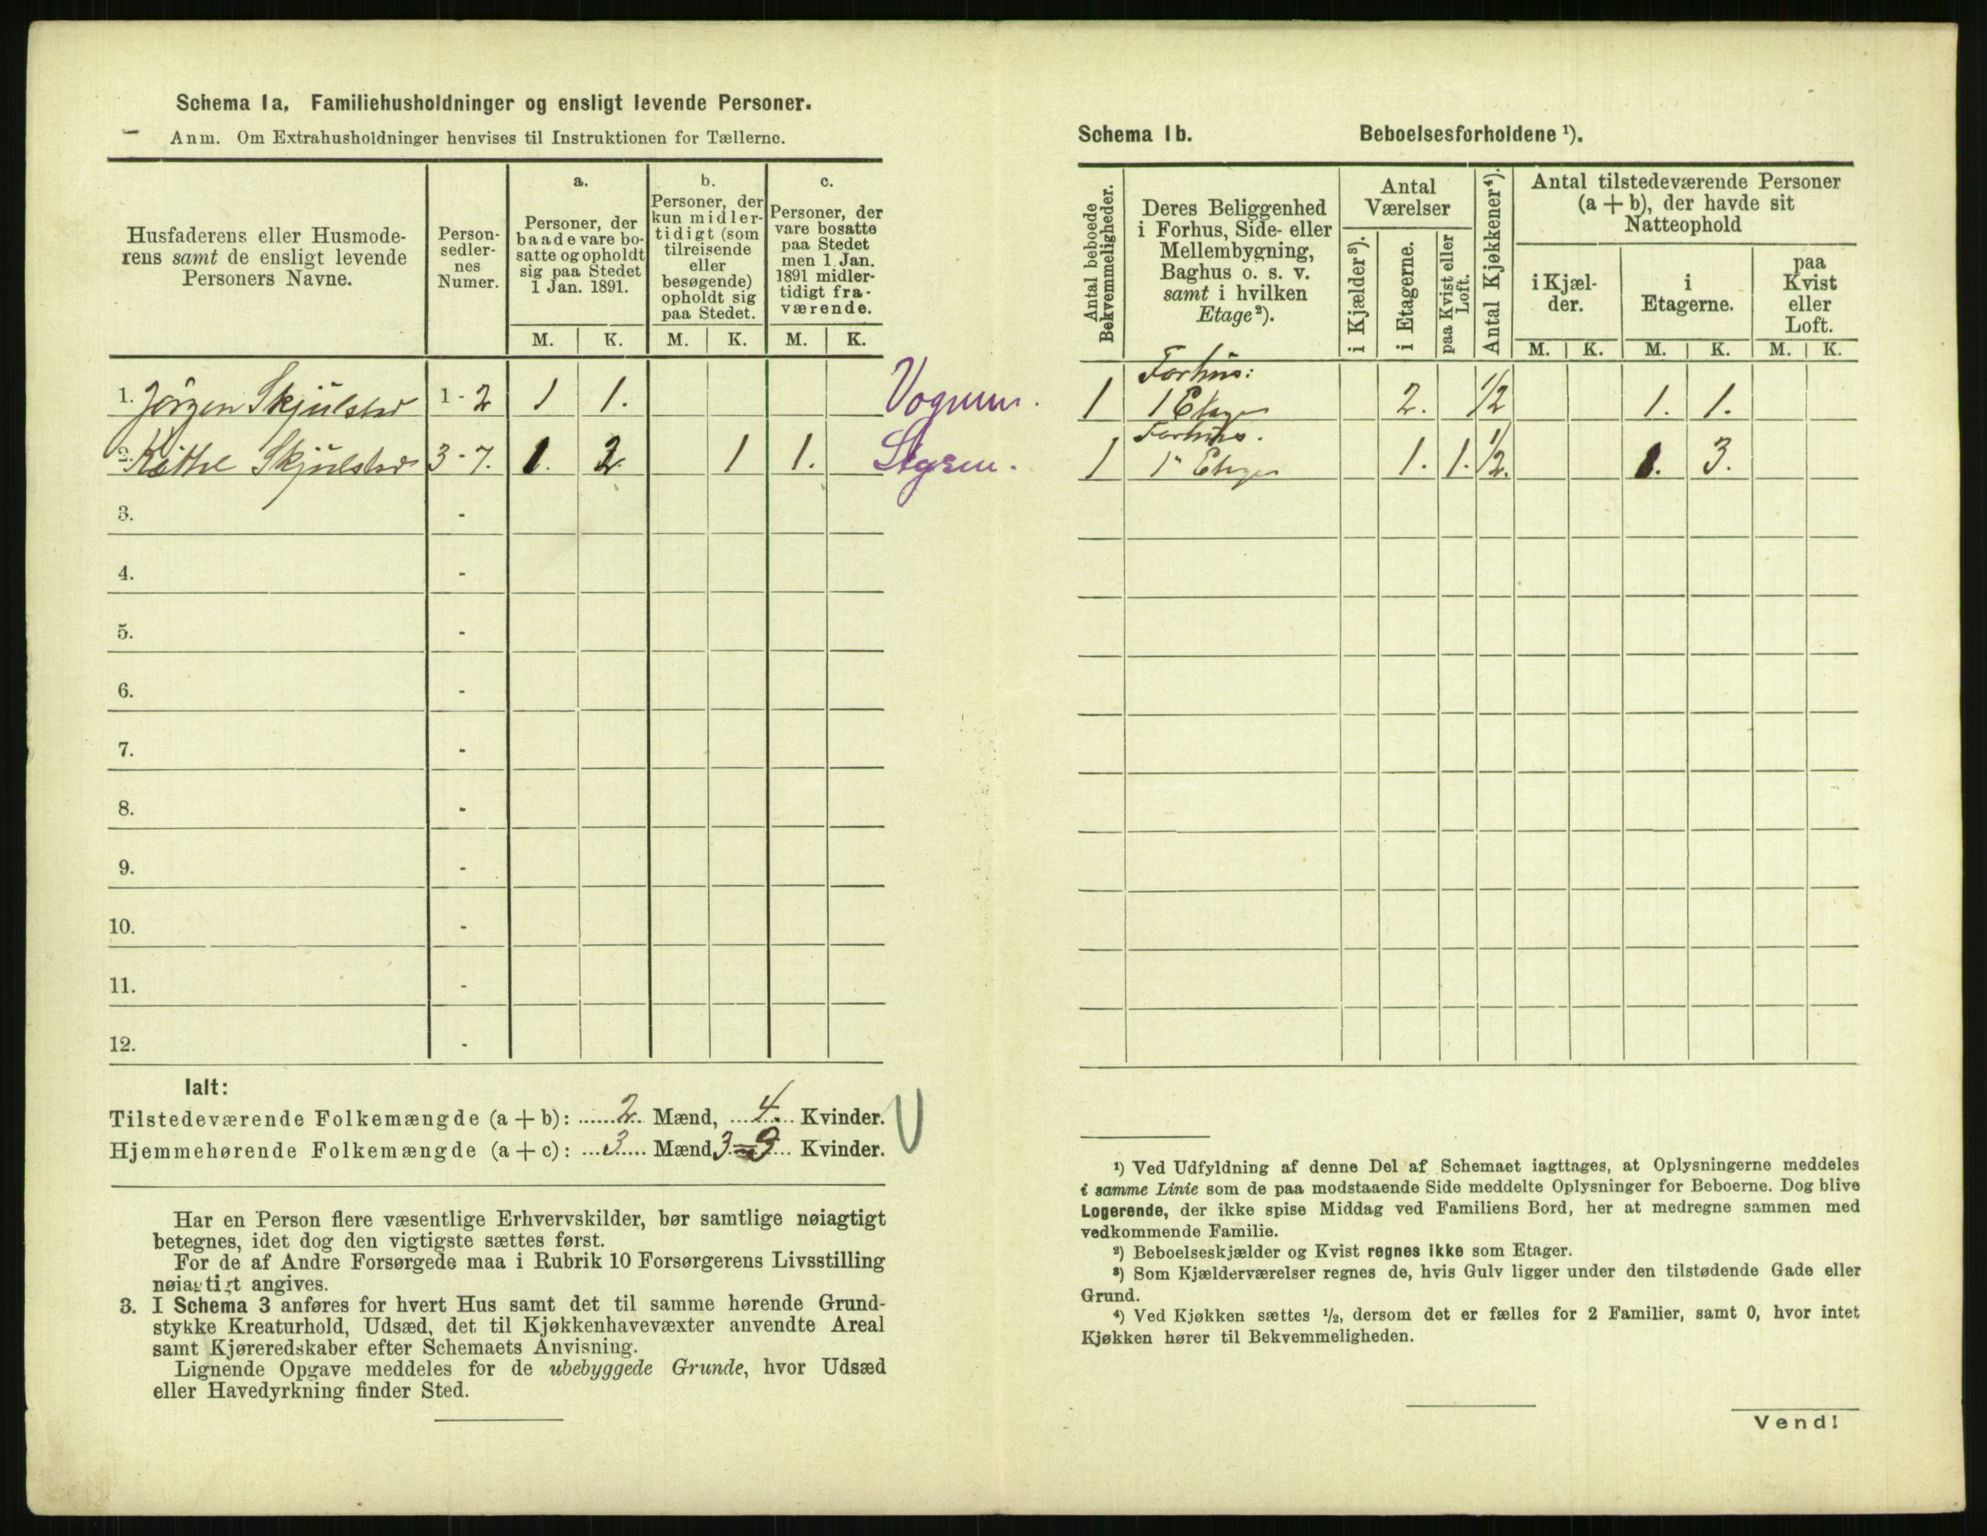 Schema 1a, Familiehusholdninger og ensligt levende Personer.
Anm. Om Extrahusholdninger henvises til Instruktionen for Tællerne.
Husfaderens eller Husmode-
rens samt de ensligt levende
Personers Navne.
Person-
sedler-
nes
Numer.
a.
Personer, der
baade vare bo-
satte og opholdt
sig paa Stedet
1 Jan. 1891.
b.
Personer, der
kun midler-
tidigt (som
tilreisende
eller
besøgende)
opholdt sig
paa Stedet.
c.
Personer, der
vare bosatte
paa Stedet
men 1 Jan.
1891 midler-
tidigt fra-
værende.
M. K. M. K. M. K.
1. Jörgen Skjulstad 1 - 2 1 1.
2. Käthe Skjulstad 3 - 7. 1. 2 1 1.
3. -
4. -
5. -
6. -
7. -
8. -
9. -
10. -
11. -
12. -
Ialt:
Tilstedeværende Folkemængde (a + b): 2 Mænd, 4. Kvinder.
Hjemmehørende Folkemængde (a + c): 3 Mænd 3 Kvinder.
Har en Person flere væsentlige Erhvervskilder, bør samtlige nøiagtigt
betegnes, idet dog den vigtigste sættes først.
For de af Andre Forsørgede maa i Rubrik 10 Forsørgerens Livsstilling
nøiagtigt angives.
3. I Schema 3 anføres for hvert Hus samt det til samme hørende Grund-
stykke Kreaturhold, Udsæd, det til Kjøkkenhavevæxter anvendte Areal
samt Kjøreredskaber efter Schemaets Anvisning.
Lignende Opgave meddeles for de ubebyggede Grunde, hvor Udsæd
eller Havedyrkning finder Sted.
Schema 1b. Beboelsesforholdene ¹).
Antal beboede
Bekvemmeligheder.
Deres Beliggenhed
i Forhus, Side- eller
Mellembygning,
Baghus o. s. v.
samt i hvilken
Etage²).
Antal
Værelser
i Kjælder³).
i Etagerne.
paa Kvist eller
Loft.
Antal Kjøkkener⁴).
Antal tilstedeværende Personer
(a + b), der havde sit
Natteophold
i Kjæl-
der.
i
Etagerne.
paa
Kvist
eller
Loft.
M. K. M. K. M. K.
Forhus:
1 1 Etage 2. 1/2 1. 1.
Forhus.
1 1" Etage 1. 1. 1/2. 1. 3.
¹) Ved Udfyldning af denne Del af Schemaet iagttages, at Oplysningerne meddeles
i samme Linie som de paa modstaaende Side meddelte Oplysninger for Beboerne. Dog blive
Logerende, der ikke spise Middag ved Familiens Bord, her at medregne sammen med
vedkommende Familie.
²) Beboelseskjælder og Kvist regnes ikke som Etager.
³) Som Kjælderværelser regnes de, hvis Gulv ligger under den tilstødende Gade eller
Grund.
⁴) Ved Kjøkken sættes ½, dersom det er fælles for 2 Familier, samt 0, hvor intet
Kjøkken hører til Bekvemmeligheden.
Vend!